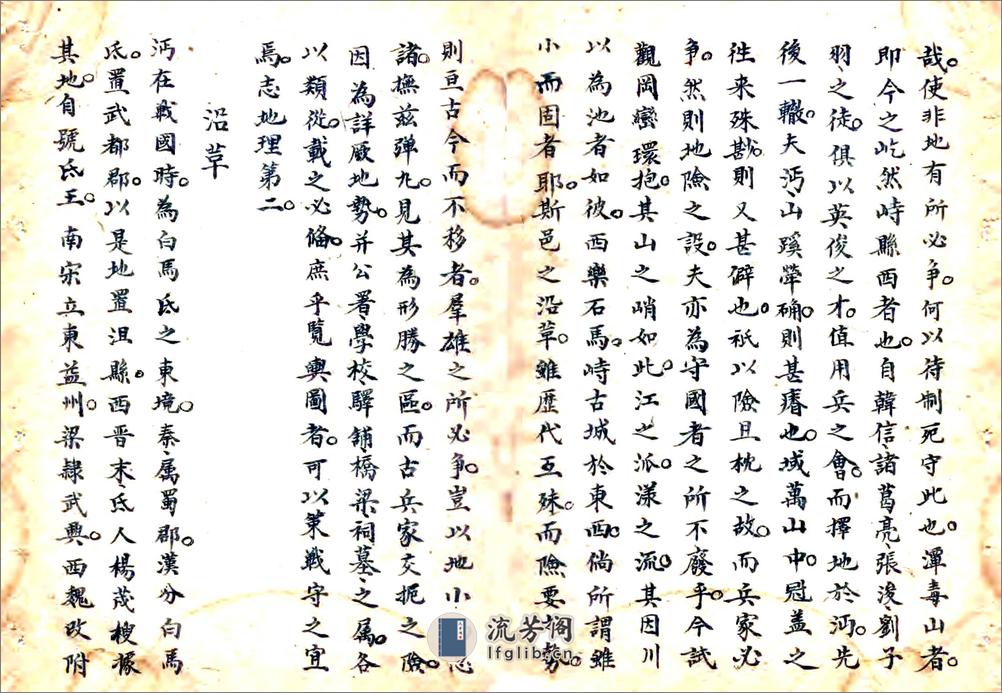 哉。使非地有所必争。何以待制死守此也。渾毒山者。
即今之屹然峙縣西者也。自韓信、諸葛亮、張浚、劉子
羽之徒。俱以英俊之才。值用兵之會。而擇地於沔。先
後一轍。夫沔、山蹊犖确。則甚瘠也。域萬山中。冠盖之
徃来殊尠。則又甚僻也。袛以險且枕之故。而兵家必
争。然則地險之設。夫亦為守國者之所不廢乎。今試
觀岡巒環抱。其山之峭如此。江之派漾之流。其因川
以為池者如彼。西樂石馬。峙古城於東西。倘所謂雖
小而固者耶。斯邑之沿革。雖歷代互殊。而險要 勢。
則亘古今而不移者。羣雄之所必争。豈以地小
諸。撫兹彈丸。見其為形勝之區。而古兵家交扼之險。
因為詳厥地勢。并公署、學校、驛舖、橋梁、祠墓、之属。各
以類從。載之必俻。庶乎覽輿圖者。可以策戰守之宜
焉。志地理第二。
沿革
沔在戰國時。為白馬氐之東境。秦、属蜀郡。漢分白馬
氐。置武都郡。以是地置沮縣。西晋末、氐人楊茂搜據
其地。自號氐王。南宋立東益州。梁隸武興。西魏改附
流芳阁
lfglib.cn